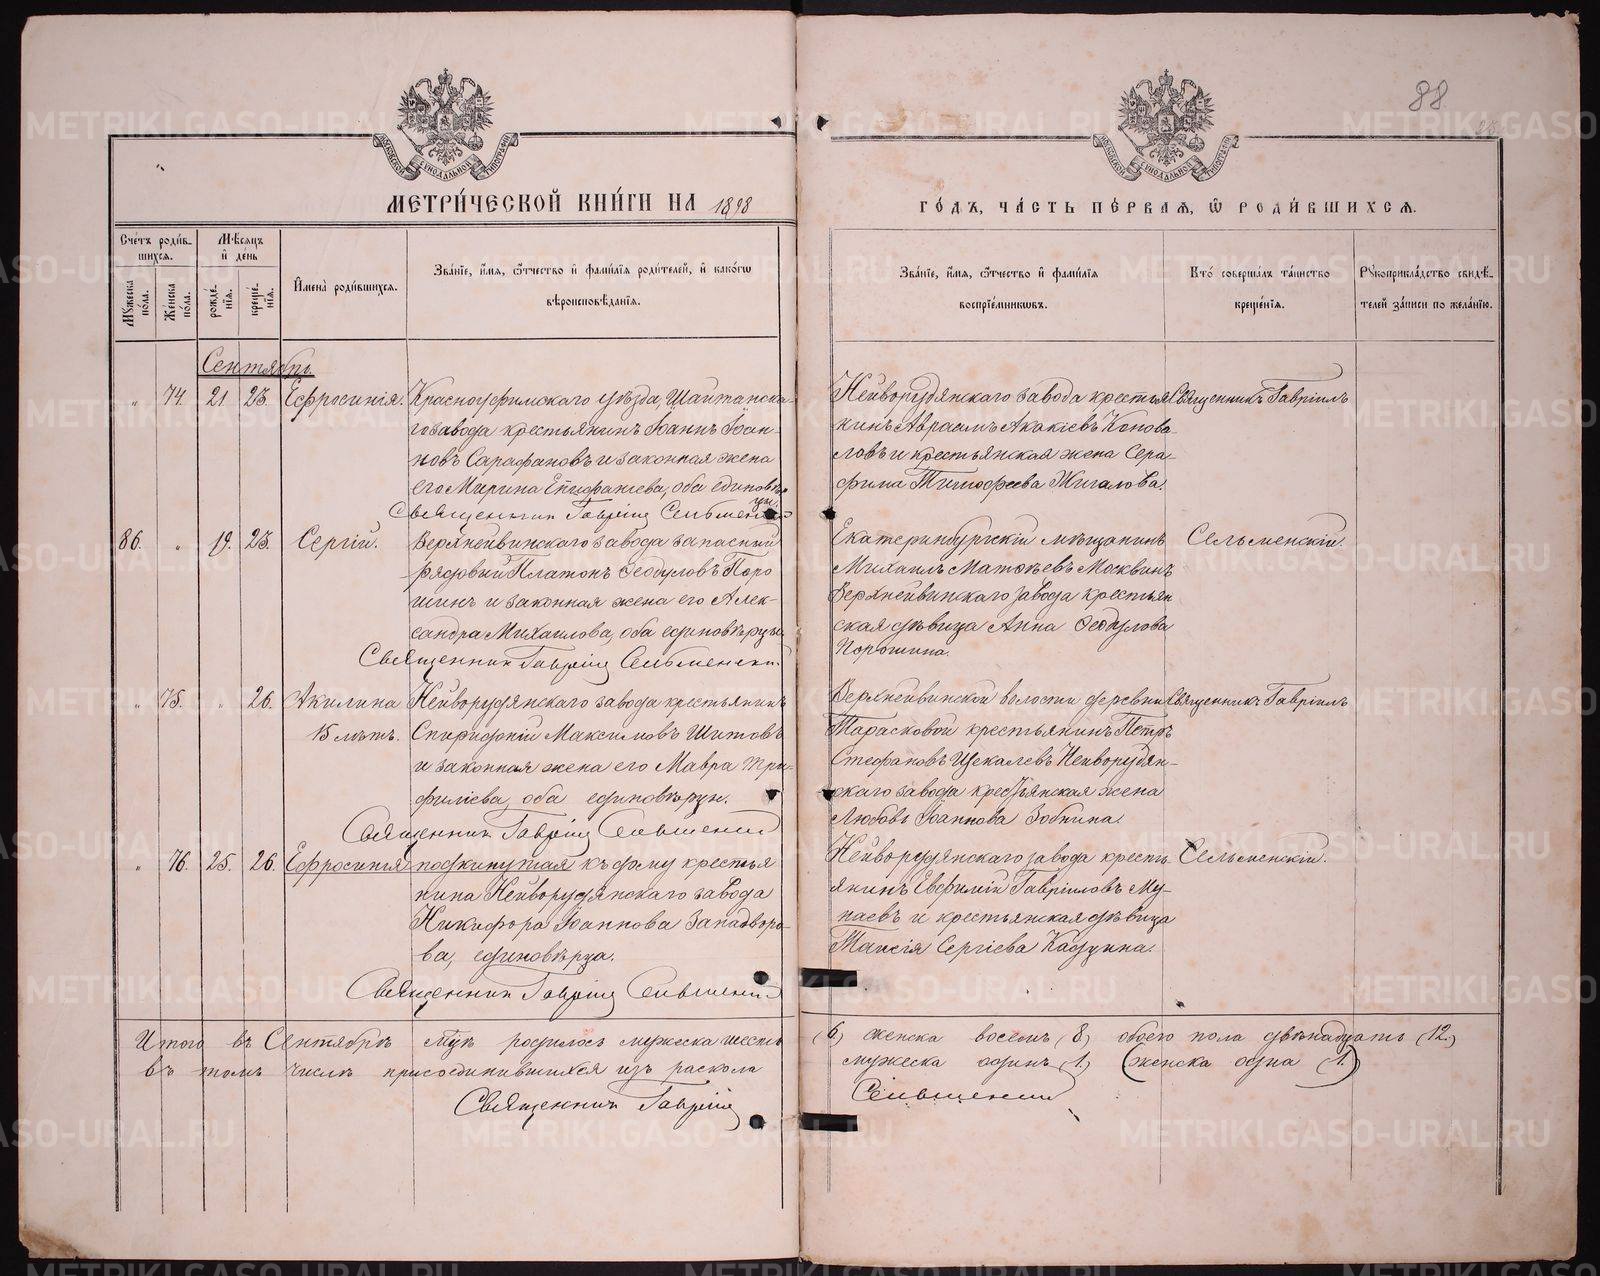 88
МОСКОВСКОЙ СѴНОДАЛЬНОЙ ТИПОГРАФІИ
МОСКОВСКОЙ СѴНОДАЛЬНОЙ ТИПОГРАФІИ
МЕТРИ́ЧЕСКОЙ КНИ́ГИ НА 1898
ГО́ДЪ, ЧА́СТЬ ПЕ́РВАЯ, Ѿ РОДИ́ВШИХСЯ.
Сче́тъ роди́в-
шихся.
Мѣсяцъ
и҆ де́нь
Мꙋжеска по́ла.
Же́нска по́ла.
рожде́-
нїя.
креще́-
нїя.
И҆мена̀ роди́вшихся.
Зва́нїе, и҆́мя, ѻ҆́тчество и҆ фами́лїя роди́телей, и҆ како́гѡ
вѣроисповѣ́данїя.
Зва́нїе, и҆́мя, ѻ҆́тчество и҆ фами́лїя
воспрїе́мниковъ.
Кто̀ соверша́лъ та́инство
креще́нїя.
Рꙋкоприкла́дство свидѣ́-
телей за́писи по жела́нїю.
Сентябрь
„ 74. 21 23. Ефросинія. Красноуфимскаго уѣзда, Шайтанска-
го завода крестьянинъ Іоаннъ Іоан-
новъ Сарафановъ и законная жена
его Марина Епифаніева, оба единовѣр-
цы.
Священник Гавріил Сельменскій
Нейворудянскаго завода крестья-
нинъ Авраамъ Акакіевъ Коново-
ловъ и крестьянская жена Сера-
фима Тимофеева Жигалова.
Священникъ Гавріилъ
86. „ 19. 23. Сергій. Верхнейвинскаго завода запасный
рядовый Платонъ Ѳеодуловъ Поро
шинъ и законная жена его Алек-
сандра Михаилова, оба единовѣрцы.
Священник Гавріил Сельменскій
Екатеринбургскій мѣщанинъ
Михаилъ Матѳѣевъ Москвинъ
Верхнейвинскаго завода крестьян
ская дѣвица Анна Ѳеодулова
Порошина.
Сельменскій.
„ 75. „ 26. Акилина Нейворудянскаго завода крестьянинъ
15 лѣтъ. Спиридоній Максимовъ Шитовъ
и законная жена его Мавра Три-
филіева, оба единовѣрцы.
Священник Гавріил Сельменскій
Верхнейвинской волости деревни
Тарасковой крестьянинъ Петръ
Стефановъ Щекалевъ Нейворудян-
скаго завода крестьянская жена
Любовь Іоаннова Зобнина.
Священникъ Гавріилъ
„ 76. 25. 26. Ефросинія подкинутая къ дому крестья
нина Нейворудянскаго завода
Никифора Іоаннова Западворо-
ва, единовѣрца.
Священник Гавріил Сельменскій
Нейворудянскаго завода кресть
янинъ Евфимій Гавріиловъ Му-
наевъ и крестьянская дѣвица
Таисія Сергіева Кадцина.
Сельменскій.
Итого въ Сентябрѣ м-цѣ родилось мужеска шесть (6) женска восемь (8) обоего пола двѣнадцать (12.)
въ томъ числѣ присоединившихся изъ раскола мужеска одинъ (1.) (женска одна (1.)
Священник Гавріил Сельменскій